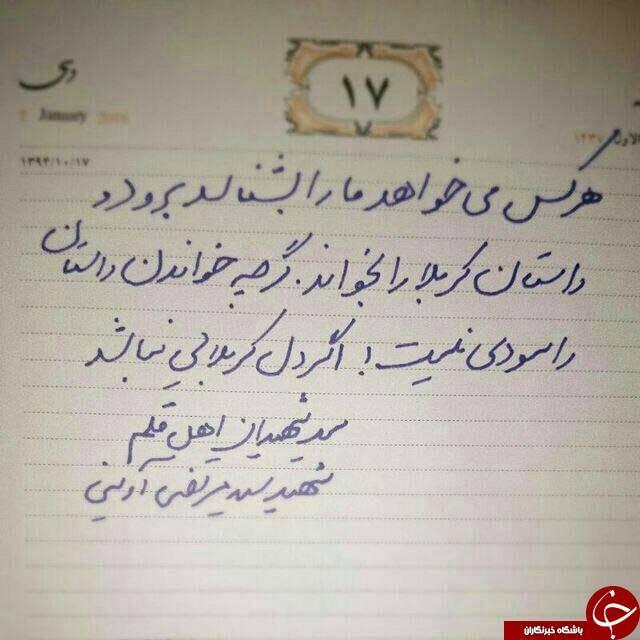 دی
۱۷
7 January 2016
۱۳۹۴/۱۰/۱۷
هر کس می خواهد ما را بشناسد برود و
داستان کربلا را بخواند. گرچه خواندن داستان
را سودی نیست! اگر دل کربلایی نباشد
سید شهیدان اهل قلم
شهید سید مرتضی آوینی
باشگاه خبرنگاران